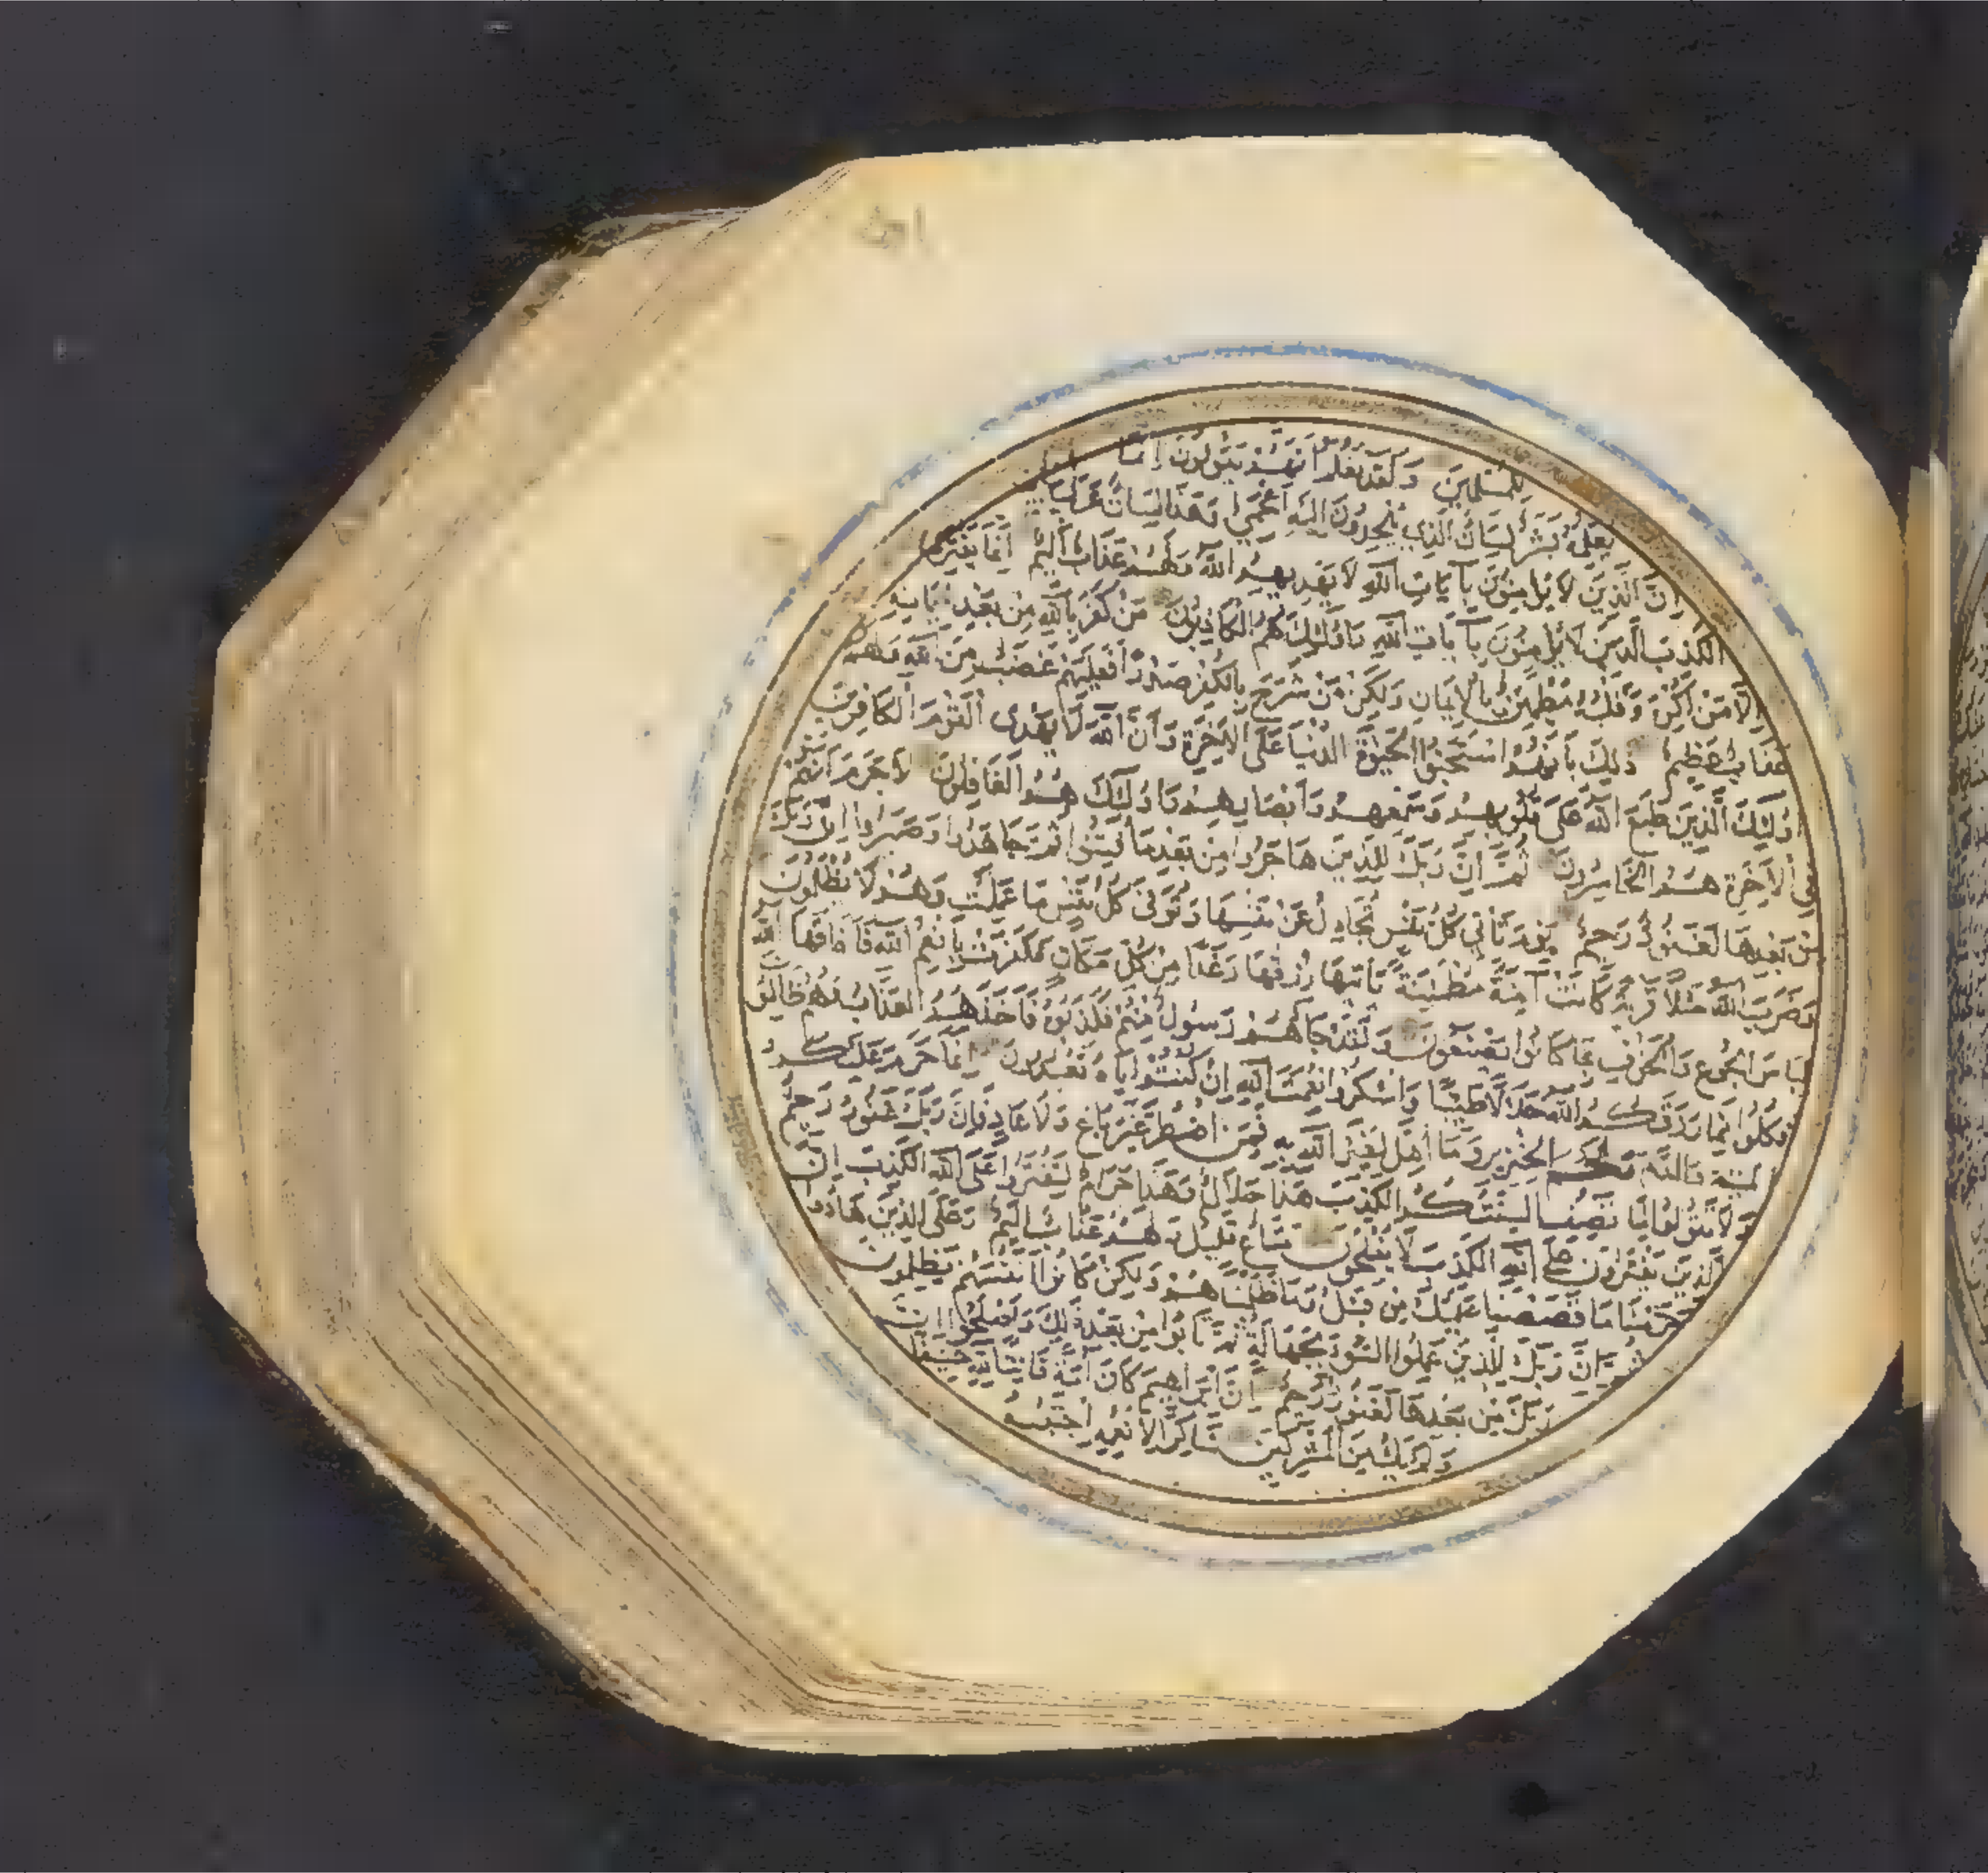 للمسلمين ولقد نعلم أنهم يقولون إنما
يعلمه بشر لسان الذي يلحدون إليه أعجمي وهذا لسان عربي
إن الذين لا يؤمنون بآيات الله لا يهديهم الله ولهم عذاب أليم إنما يفتري
الكذب الذين لا يؤمنون بآيات الله واولئك هم الكاذبون من كفر بالله من بعد إيمانه
إلا من أكره وقلبه مطمئن بالإيمان ولكن من شرح بالكفر صدرا فعليهم غضب من الله ولهم
عذاب عظيم ذلك بأنهم استحبوا الحيوة الدنيا على الآخرة وأن الله لا يهدي القوم الكافرين
أولئك الذين طبع الله على قلوبهم وسمعهم وأبصارهم واولئك هم الغافلون لا جرم أنهم
في الآخرة هم الخاسرون ثم إن ربك للذين هاجروا من بعد ما فتنوا ثم جاهدوا وصبروا إن ربك
من بعدها لغفور رحيم يوم تأتي كل نفس تجادل عن نفسها وتوفى كل نفس ما عملت وهم لا يظلمون
وضرب الله مثلا قرية كانت آمنة مطمئنة يأتيها رزقها رغدا من كل مكان فكفرت بأنعم الله فأذاقها الله
لباس الجوع والخوف بما كانوا يصنعون ولقد جاءهم رسول منهم فكذبوه فأخذهم العذاب وهم ظالمون
فكلوا مما رزقكم الله حلالا طيبا واشكروا نعمت الله إن كنتم إياه تعبدون إنما حرم عليكم
الميتة والدم ولحم الخنزير وما أهل لغير الله به فمن اضطر غير باغ ولا عاد فإن ربك غفور رحيم
ولا تقولوا لما تصف ألسنتكم الكذب هذا حلال وهذا حرام لتفتروا على الله الكذب إن
الذين يفترون على الله الكذب لا يفلحون متاع قليل ولهم عذاب أليم وعلى الذين هادوا
حرمنا ما قصصنا عليك من قبل وما ظلمناهم ولكن كانوا أنفسهم يظلمون
ثم إن ربك للذين عملوا السوء بجهالة ثم تابوا من بعد ذلك وأصلحوا إن
ربك من بعدها لغفور رحيم إن إبراهيم كان أمة قانتا لله حنيفا
ولم يك من المشركين شاكرا لأنعمه اجتبيه